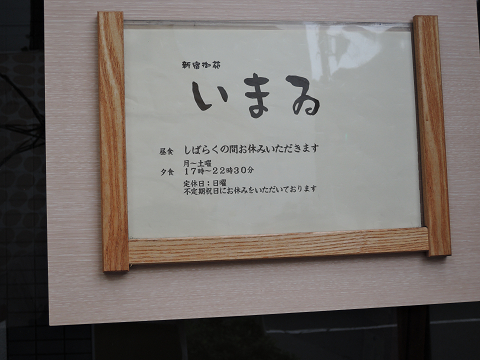 新宿御苑
いまゐ
昼食 しばらくの間お休みいただきます
月〜土曜
夕食 17時〜22時30分
定休日:日曜
不定期祝日にお休みをいただいております